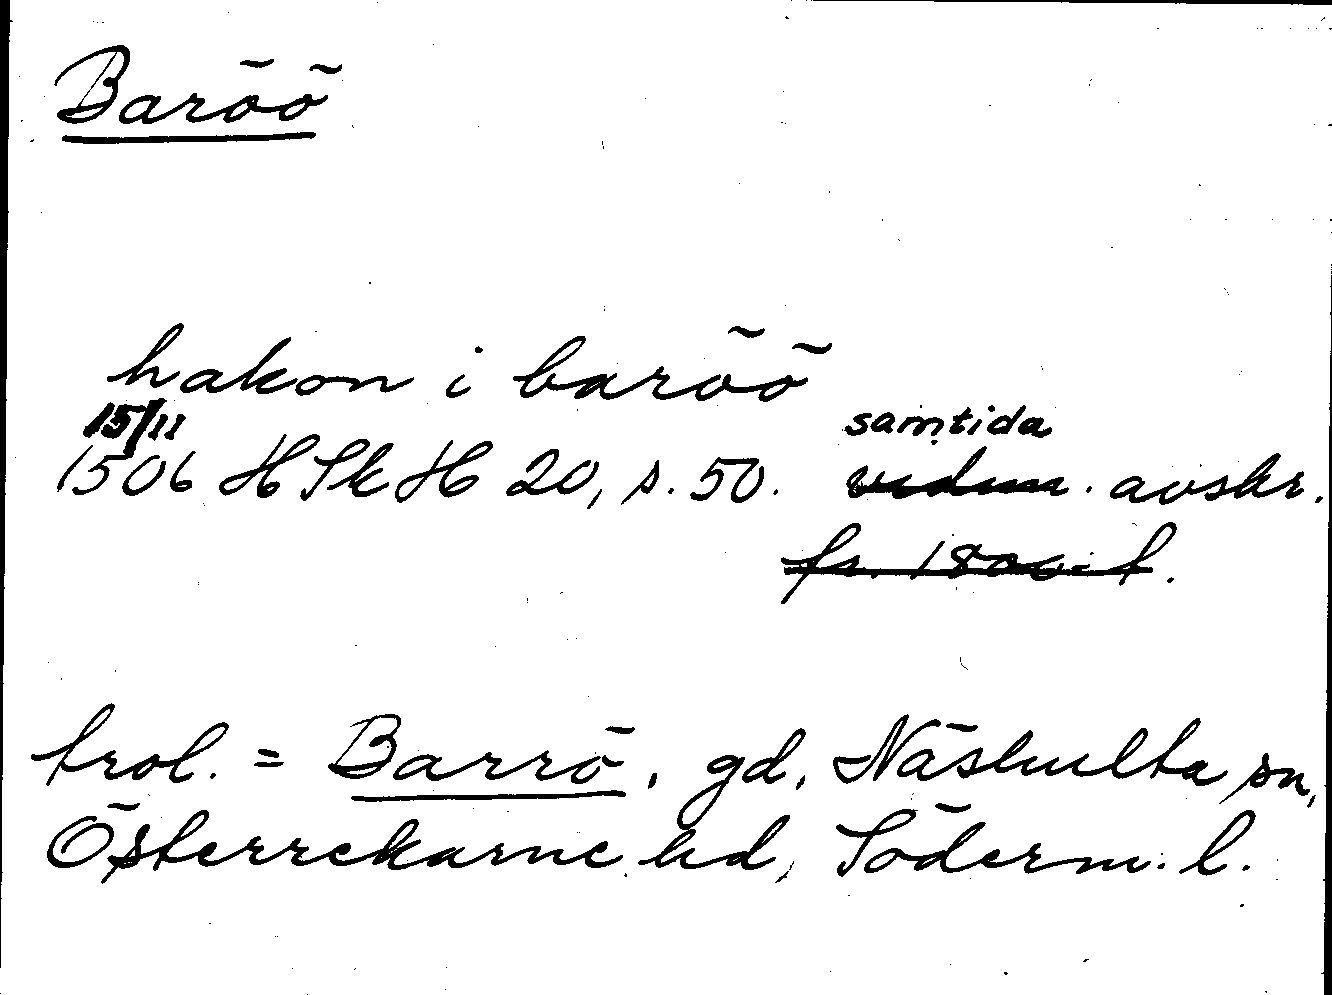 Baröö
hakon i baröö
15/11 samtida
1506 HSkH 20, s. 50. vidim. avskr.
fr. 1800-t.
trol. = Barrö, gd, Näshulta sn,
Österrekarne hd, Söderm. l.